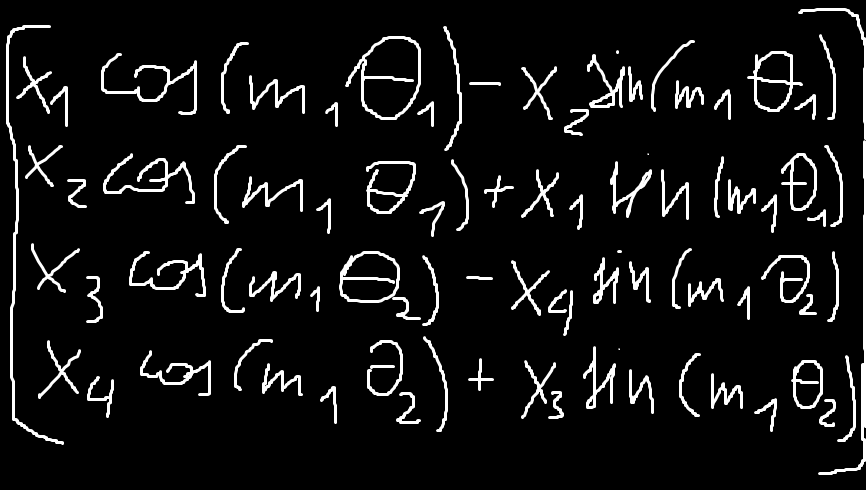 x₁ cos(m₁θ₁) - x₂ sin(m₁θ₁)
x₂ cos(m₁θ₁) + x₁ sin(m₁θ₁)
x₃ cos(m₁θ₂) - x₄ sin(m₁θ₂)
x₄ cos(m₁θ₂) + x₃ sin(m₁θ₂)